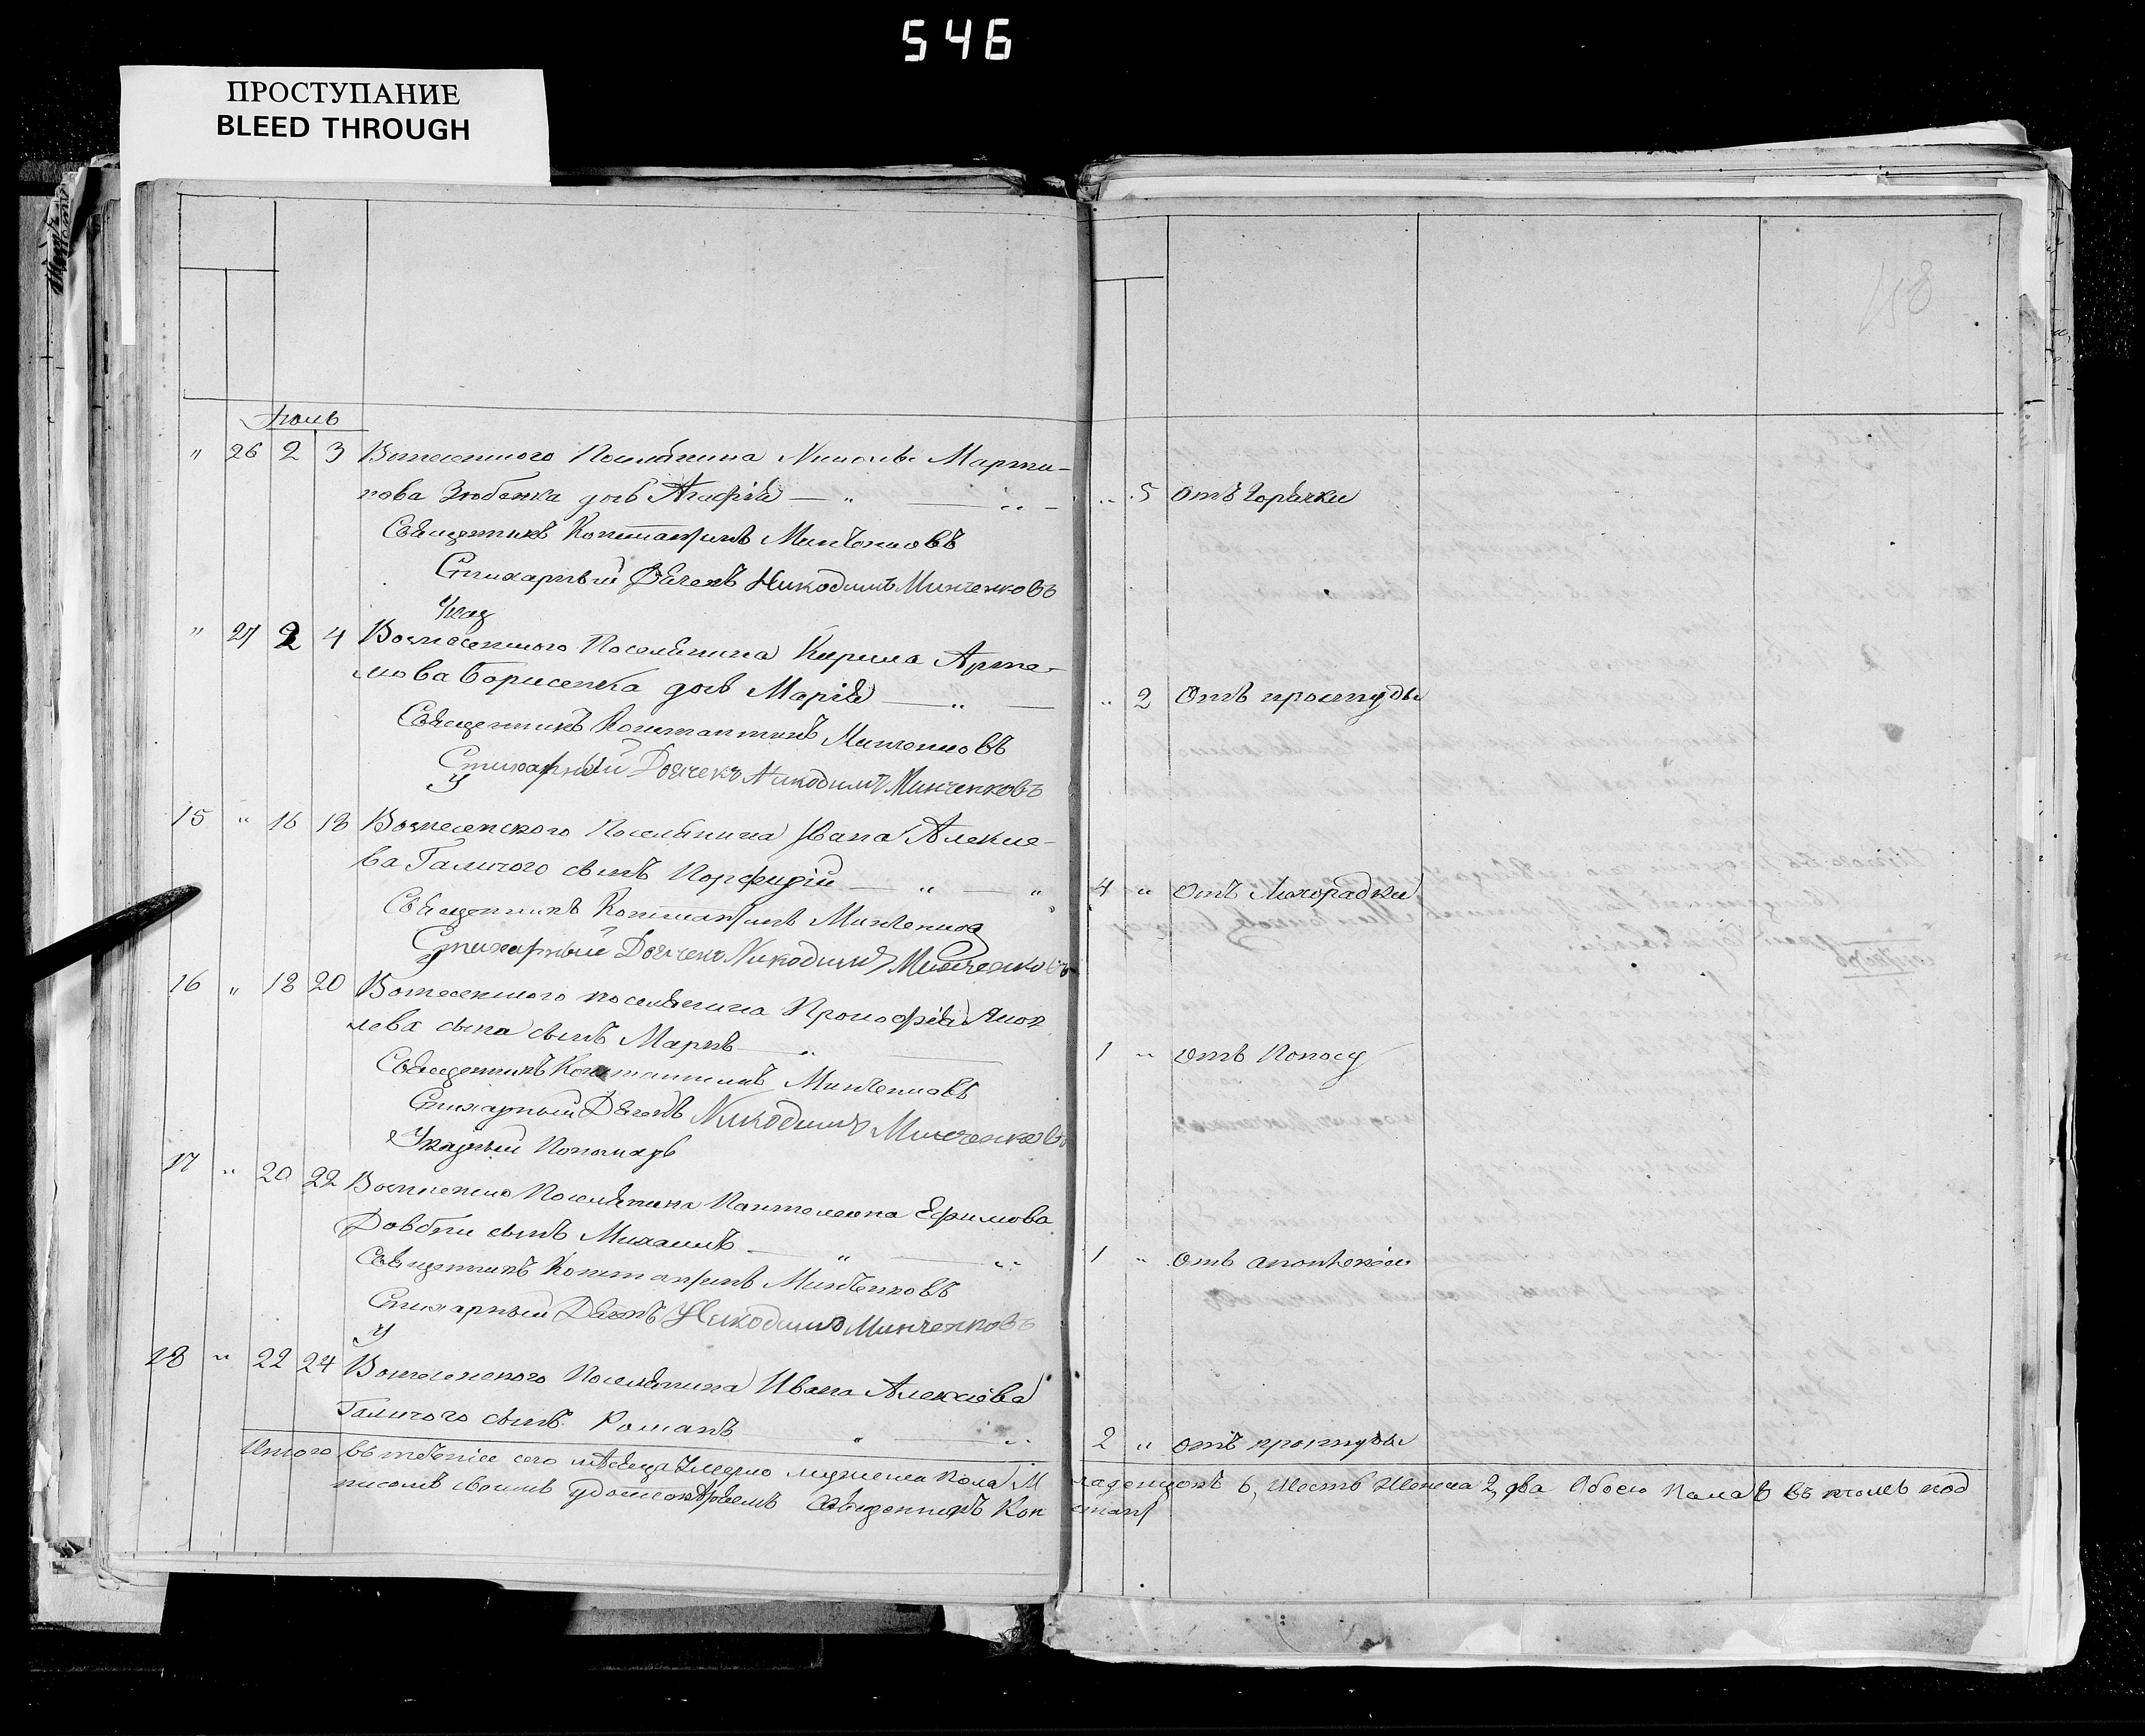 546
ПРОСТУПАНИЕ
BLEED THROUGH
158
Іюль
" 26 2 3 Вознесенского Поселянина Марти-
нова Зюбенка дочь Агафія — " — " 5 Отъ Горячки
Священникъ Константинъ Минченковъ
Стихарный Дьячекъ Никодимъ Минченковъ
Указ
" 27 2 4 Вознесенского Поселянина Кирила Арте-
мова Борисенка дочь Марія — " — " 2 Отъ простуды
Священникъ Константинъ Минченковъ
Стихарный Дьячекъ Никодимъ Минченковъ
У
15 " 16 18 Вознесенского Поселянина Ивана Алексѣе-
ва Галичого сынъ Порфирій — " — " 4 " Отъ Лихорадки
Священникъ Константинъ Минченков
Стихарный Дьячекъ Никодимъ Минченковъ
У
16 " 18 20 Вознесенского поселянина Прокофія Яков
лева сына сынъ Маркъ — " — 1 " отъ Поносу
Священникъ Константинъ Минченковъ
Стихарный Дьячекъ Никодимъ Минченковъ
Указный Пономарь
17 " 20 22 Поселянина Пантелеона Ефимова
Довбни сынъ Михаилъ — " — " 1 " отъ
Священникъ Константинъ Минченковъ
Стихарный Дьячекъ Никодимъ Минченковъ
У
18 " 22 24 Вознесенского Поселянина Ивана Алексѣева
Галичого сынъ Романъ " — " 2 " отъ простуды
Итого въ теченіе сего мѣсяца Умерло мужеска пола М ладенцовъ 6, шесть Женска 2, два Обоего Пола въ под
писомъ своимъ удостовѣряемъ Священникъ Кон стан